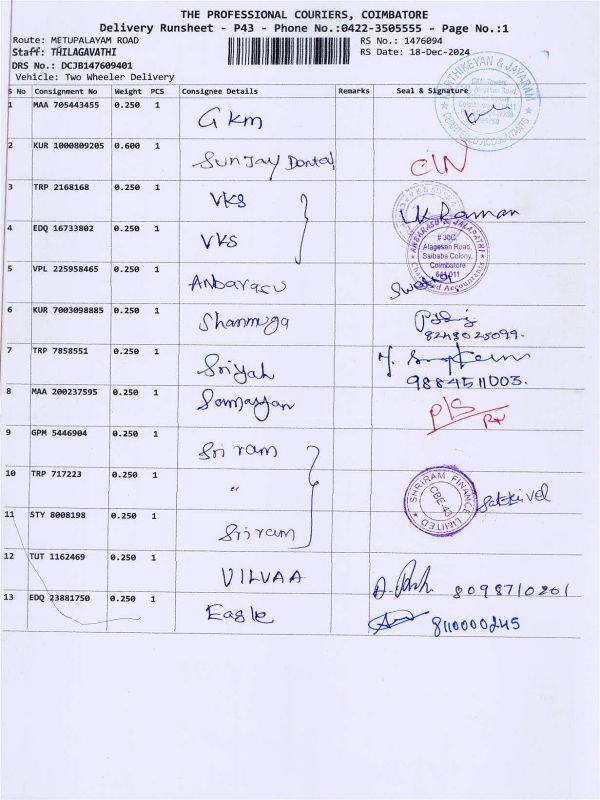 THE PROFESSIONAL COURIERS, COIMBATORE
Delivery Runsheet - P43 - Phone No.:0422-3505555 - Page No.:1
Route: METUPALAYAM ROAD
RS No.: 1476094
Staff: THILAGAVATHI
RS Date: 18-Dec-2024
DRS No.: DCJB147609401
Vehicle: Two Wheeler Delivery
S No Consignment No Weight PCS Consignee Details Remarks Seal & Signature
1 MAA 705443455 0.250 1 GKM
2 KUR 1000809205 0.600 1 Sunjay Dental
3 TRP 2168168 0.250 1 VKS VK Raman
4 EDQ 16733802 0.250 1 VKS
ANBARASU & JALAPATHI
# 30C,
Alagesan Road,
Saibaba Colony,
Coimbatore
641 011
Chartered Accountants
5 VPL 225958465 0.250 1 Anbarasu
6 KUR 7003098885 0.250 1 Shanmuga
8248025099.
7 TRP 7858551 0.250 1 Sriyah
9884511003.
8 MAA 200237595 0.250 1 Samayyan P/S
9 GPM 5446904 0.250 1 Sri ram
10 TRP 717223 0.250 1 "
SHRIRAM FINANCE LIMITED
CBE-43
Sakthivel
11 STY 8008198 0.250 1 Sriram
12 TUT 1162469 0.250 1 VILVAA 8098710201
13 EDQ 23881750 0.250 1 Eagle 8110000245